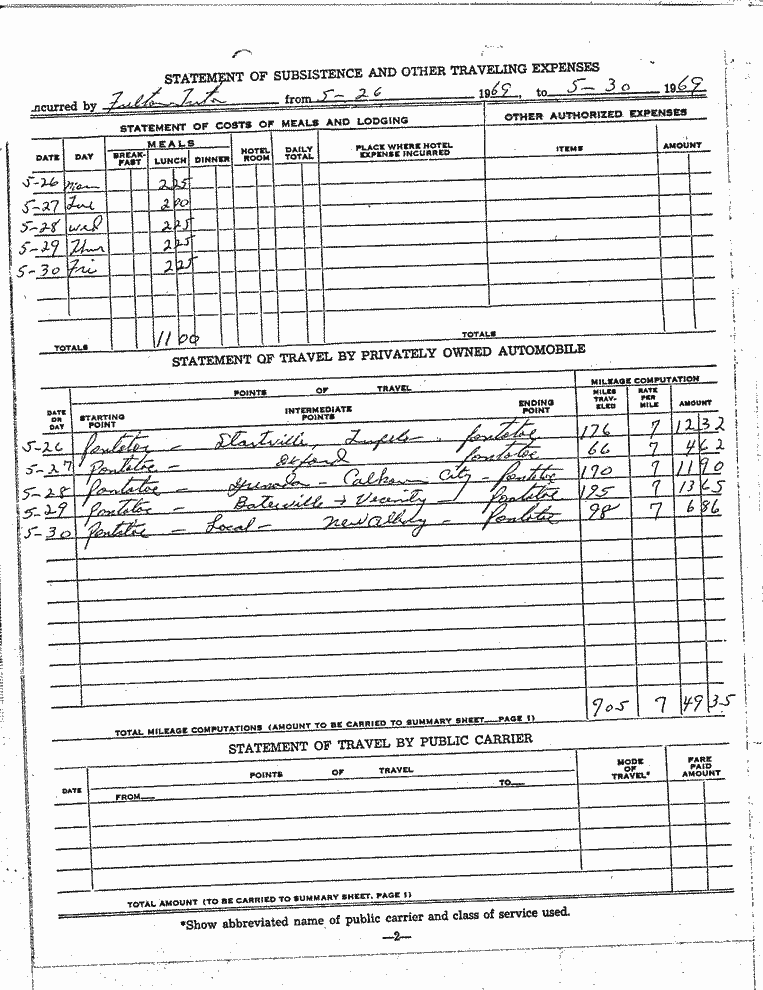 STATEMENT OF SUBSISTENCE AND OTHER TRAVELING EXPENSES
ncurred by Fulton Tutor from 5-26 1969, to 5-30 1969
STATEMENT OF COSTS OF MEALS AND LODGING OTHER AUTHORIZED EXPENSES
DATE DAY MEALS BREAK-FAST LUNCH DINNER HOTEL ROOM DAILY TOTAL PLACE WHERE HOTEL EXPENSE INCURRED ITEMS AMOUNT
5-26 Mon 2 25
5-27 Tue 2 00
5-28 Wed 2 25
5-29 Thur 2 25
5-30 Fri 2 25
TOTALS 11 00 TOTALS
STATEMENT OF TRAVEL BY PRIVATELY OWNED AUTOMOBILE
POINTS OF TRAVEL MILEAGE COMPUTATION
DATE OR DAY STARTING POINT INTERMEDIATE POINTS ENDING POINT MILES TRAV-ELED RATE PER MILE AMOUNT
5-26 Pontotoc - Starkville, Tupelo - Pontotoc 176 7 12 32
5-27 Pontotoc - Oxford Pontotoc 66 7 4 62
5-28 Pontotoc - Grenada - Calhoun City - Pontotoc 170 7 11 90
5-29 Pontotoc - Batesville + Vicinity - Pontotoc 195 7 13 65
5-30 Pontotoc - Local - New Albany - Pontotoc 98 7 6 86
TOTAL MILEAGE COMPUTATIONS (AMOUNT TO BE CARRIED TO SUMMARY SHEET PAGE 1) 705 7 49 35
STATEMENT OF TRAVEL BY PUBLIC CARRIER
DATE POINTS OF TRAVEL MODE OF TRAVEL* FARE PAID AMOUNT
FROM TO
TOTAL AMOUNT (TO BE CARRIED TO SUMMARY SHEET, PAGE 1)
*Show abbreviated name of public carrier and class of service used.
—2—